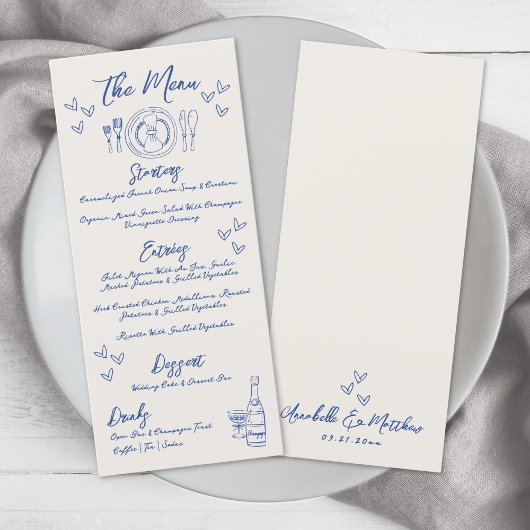 The Menu
Starters
Caramelized French Onion Soup & Crostini
Organic Mixed Green Salad With Champagne
Vinaigrette Dressing
Entrées
Filet Mignon With An Jus, Garlic
Mashed Potatoes & Grilled Vegetables
Herb Crusted Chicken Medallions, Roasted
Potatoes & Grilled Vegetables
Risotto With Grilled Vegetables
Dessert
Wedding Cake & Dessert Bar
Drinks
Open Bar & Champagne Toast
Coffee | Tea | Sodas
Annabelle & Matthew
09.21.20